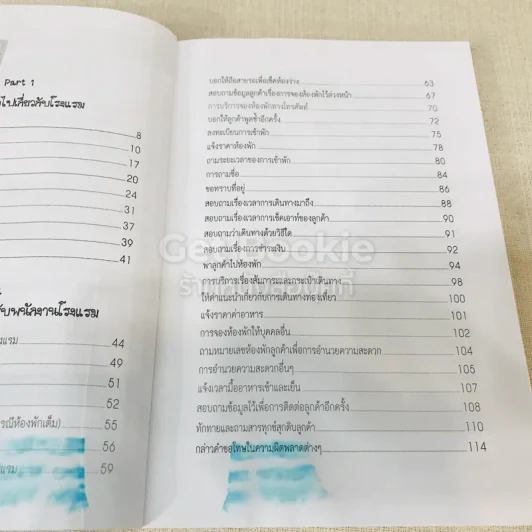 Part 1
ไปเกี่ยวกับโรงแรม
8
10
17
20
24
31
37
39
41
บพนักงานโรงแรม
งแรม 44
49
51
52
รณีห้องพักเต็ม) 55
56
แรม 59
บอกให้ถือสายรอเพื่อเช็คห้องว่าง 63
สอบถามข้อมูลลูกค้าเรื่องการจองห้องพักไว้ล่วงหน้า 67
การบริการจองห้องพักทางโทรศัพท์ 70
บอกให้ลูกค้าพูดซ้ำอีกครั้ง 72
ลงทะเบียนการเข้าพัก 75
แจ้งราคาห้องพัก 78
ถามระยะเวลาของการเข้าพัก 80
การถามชื่อ 84
ขอทราบที่อยู่ 86
สอบถามเรื่องเวลาการเดินทางมาถึง 88
สอบถามเรื่องเวลาการเช็คเอาท์ของลูกค้า 90
สอบถามว่าเดินทางด้วยวิธีใด 91
สอบถามเรื่องการชำระเงิน 92
พาลูกค้าไปห้องพัก 94
การบริการเรื่องสัมภาระและกระเป๋าเดินทาง 98
ให้คำแนะนำเกี่ยวกับการเดินทางท่องเที่ยว 100
แจ้งราคาค่าอาหาร 101
การจองห้องพักให้บุคคลอื่น 102
ถามหมายเลขห้องพักลูกค้าเพื่อการอำนวยความสะดวก 104
การอำนวยความสะดวกอื่นๆ 105
แจ้งเวลามื้ออาหารเช้าและเย็น 107
สอบถามข้อมูลไว้เพื่อการติดต่อลูกค้าอีกครั้ง 108
ทักทายและถามสารทุกข์สุกดิบลูกค้า 110
กล่าวคำขอโทษในความผิดพลาดต่างๆ 114